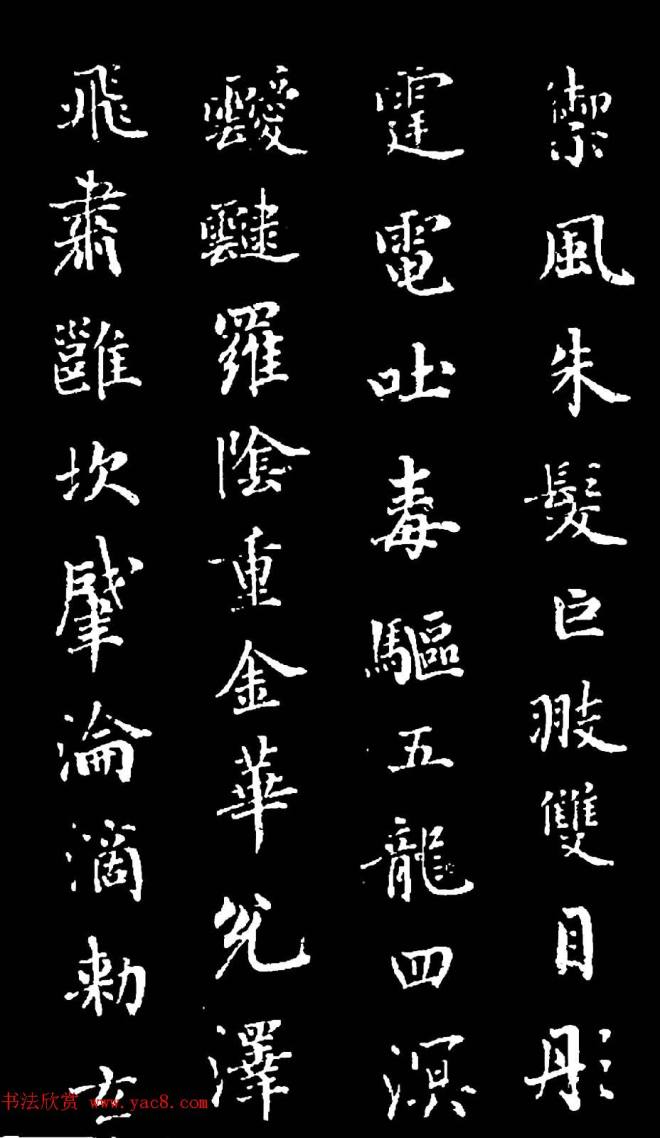 禦風朱髮巨翄雙目彤
霆電吐毒驅五龍四溟
靉靆羅陰重金華允澤
飛肅雝坎肈淪滴勅玄
书法欣赏 www.yac8.com